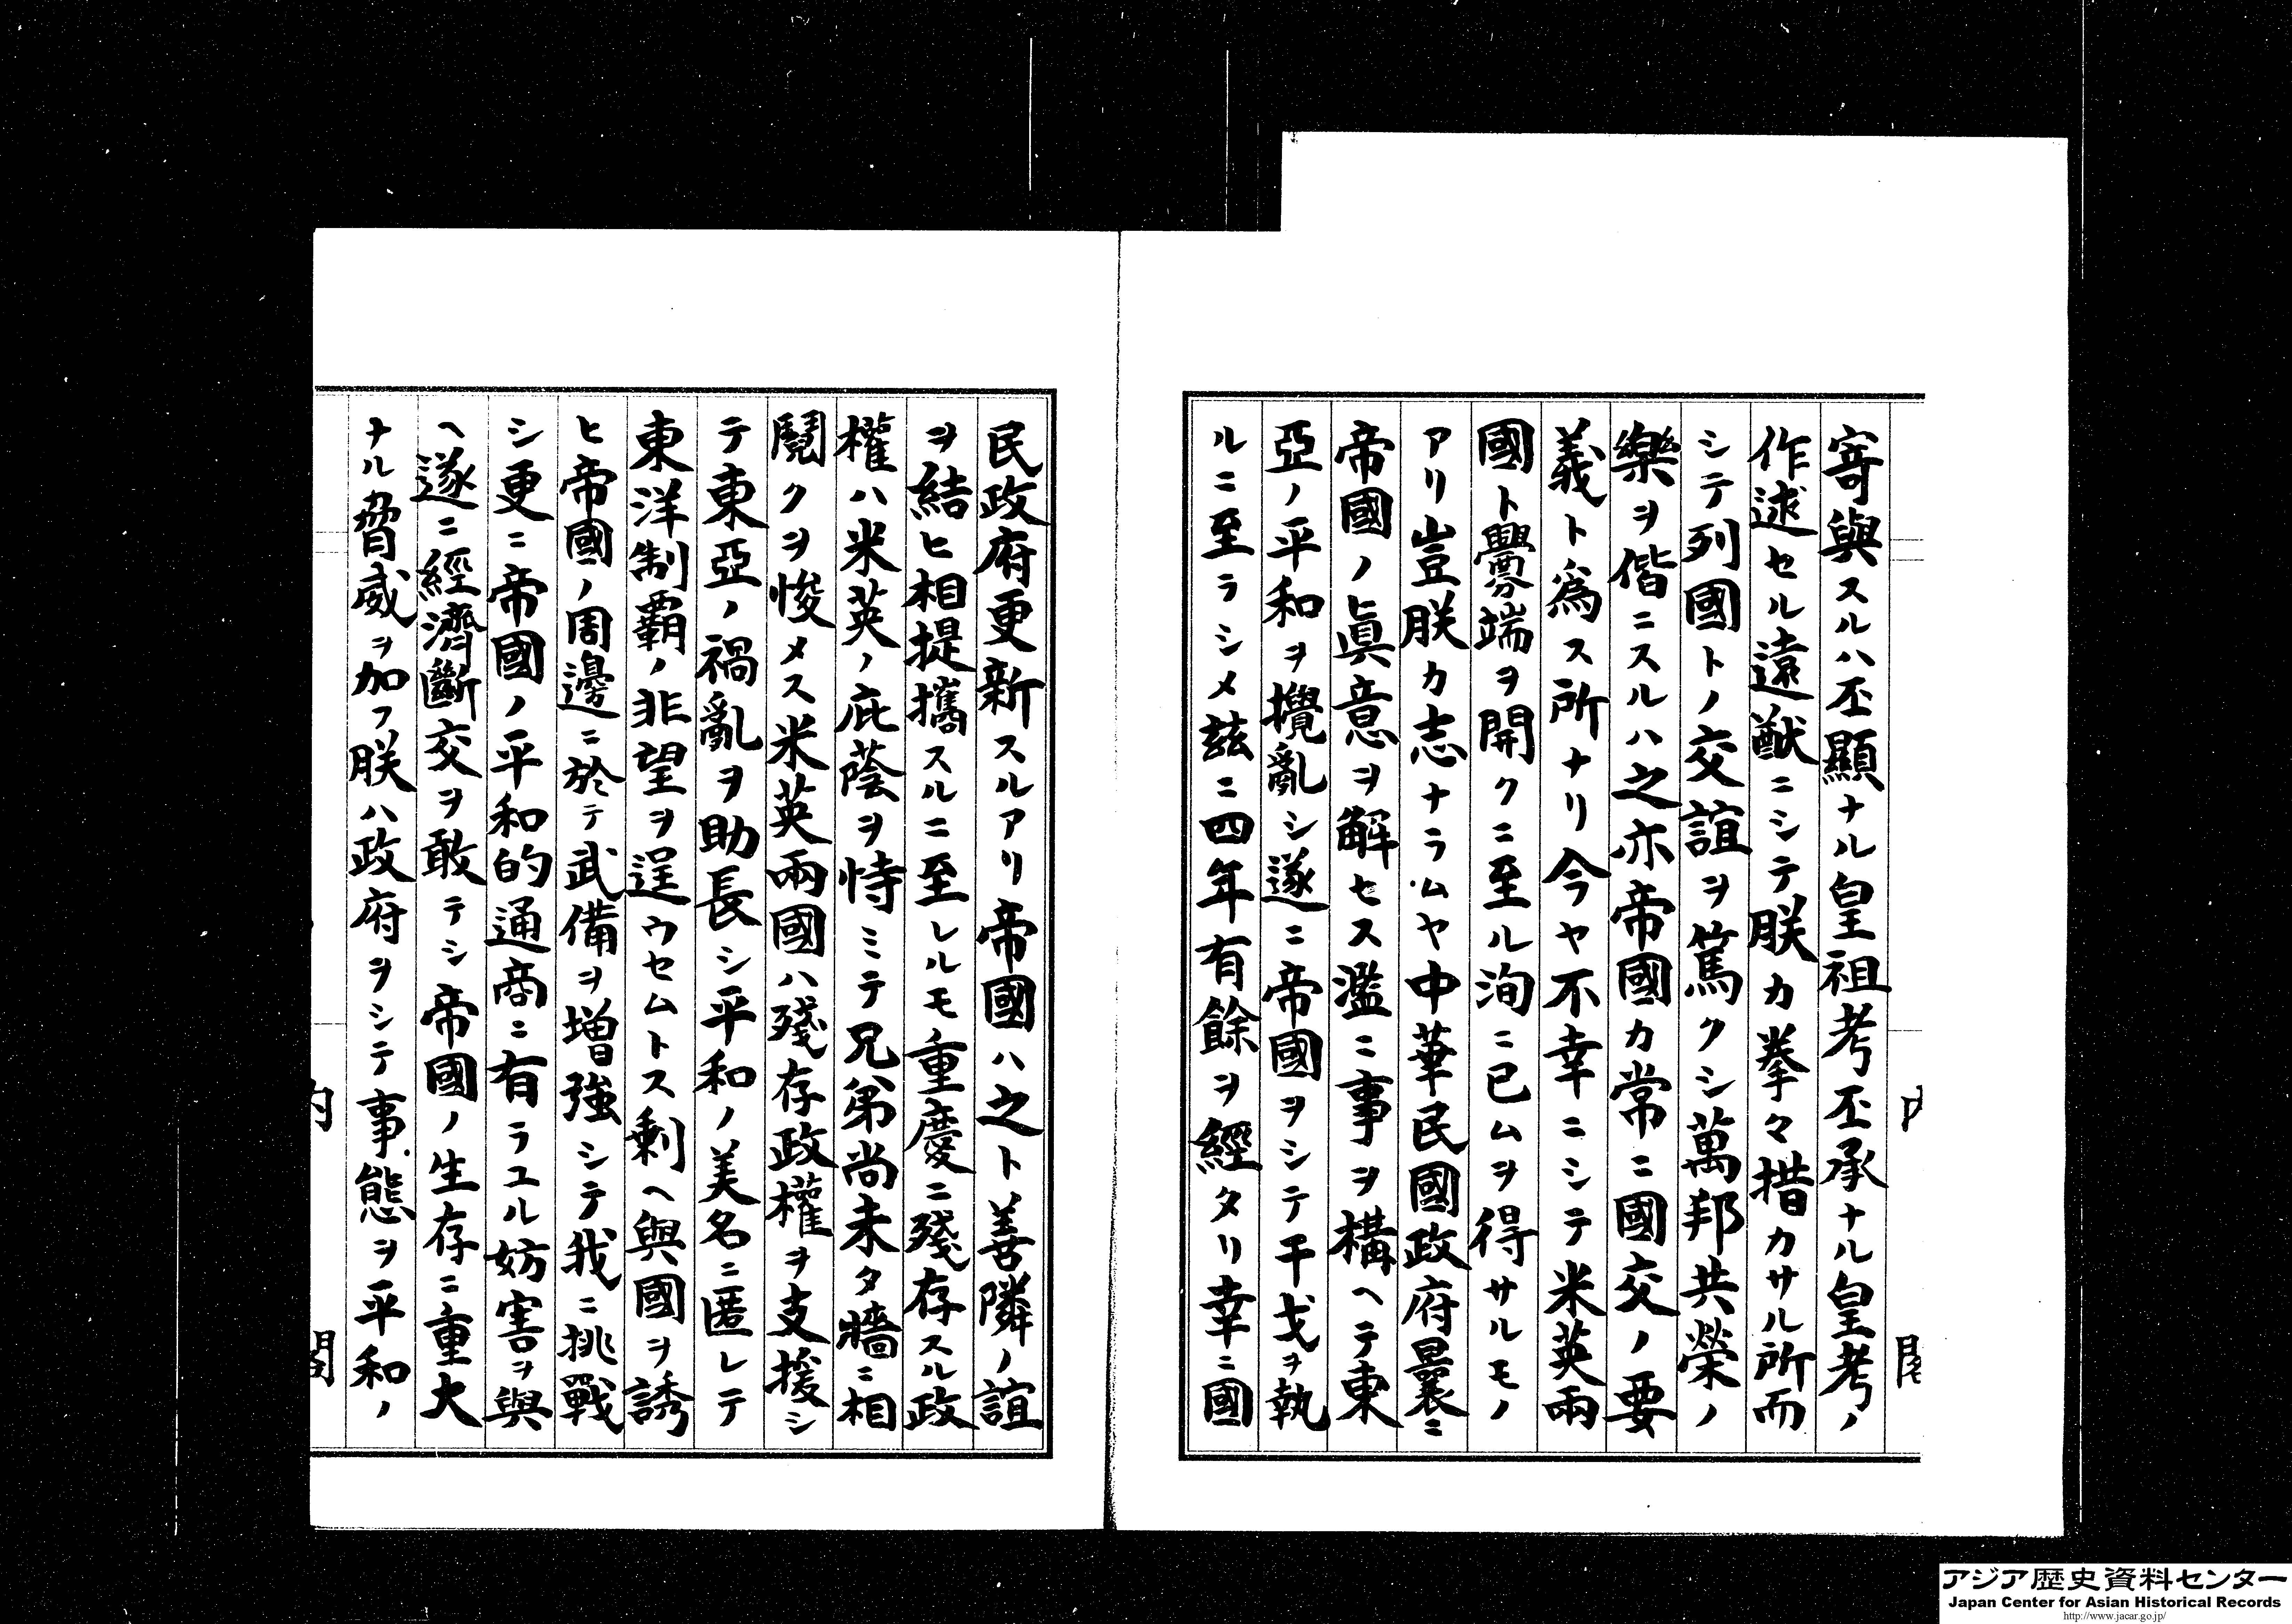 寄與スルハ丕顯ナル皇祖考丕承ナル皇考ノ
作述セル遠猷ニシテ朕カ拳々措カサル所而
シテ列國トノ交誼ヲ篤クシ萬邦共榮ノ
樂ヲ偕ニスルハ之亦帝國カ常ニ國交ノ要
義ト爲ス所ナリ今ヤ不幸ニシテ米英兩
國ト釁端ヲ開クニ至ル洵ニ已ムヲ得サルモノ
アリ豈朕カ志ナラムヤ中華民國政府曩ニ
帝國ノ眞意ヲ解セス濫ニ事ヲ構ヘテ東
亞ノ平和ヲ攪亂シ遂ニ帝國ヲシテ干戈ヲ執
ルニ至ラシメ玆ニ四年有餘ヲ經タリ幸ニ國
民政府更新スルアリ帝國ハ之ト善隣ノ誼
ヲ結ヒ相提攜スルニ至レルモ重慶ニ殘存スル政
權ハ米英ノ庇蔭ヲ恃ミテ兄弟尚未タ牆ニ相
鬩クヲ悛メス米英兩國ハ殘存政權ヲ支援シ
テ東亞ノ禍亂ヲ助長シ平和ノ美名ニ匿レテ
東洋制覇ノ非望ヲ逞ウセムトス剩ヘ與國ヲ誘
ヒ帝國ノ周邊ニ於テ武備ヲ增強シテ我ニ挑戰
シ更ニ帝國ノ平和的通商ニ有ラユル妨害ヲ與
ヘ遂ニ經濟斷交ヲ敢テシ帝國ノ生存ニ重大
ナル脅威ヲ加フ朕ハ政府ヲシテ事態ヲ平和ノ
内閣
アジア歴史資料センター
Japan Center for Asian Historical Records
http://www.jacar.go.jp/